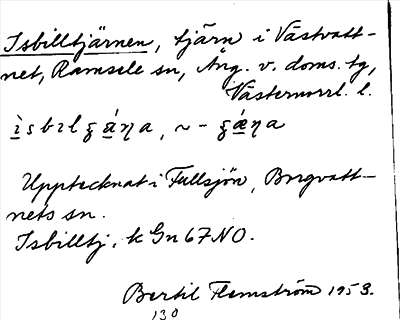 Isbilltjärnen, tjärn i Västvatt-
net, Ramsele sn, Ång. v. doms. tg,
Västernorrl. l.
Upptecknat i Fullsjön, Borgvatt-
nets sn.
Isbilltj. k Gn 67 NO.
Bertil Flemström 1953.
130